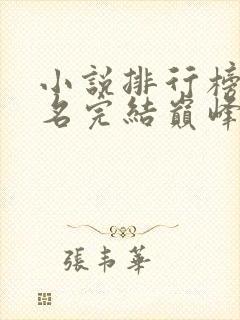 小說排行榜
名完結巔峰
張韋華